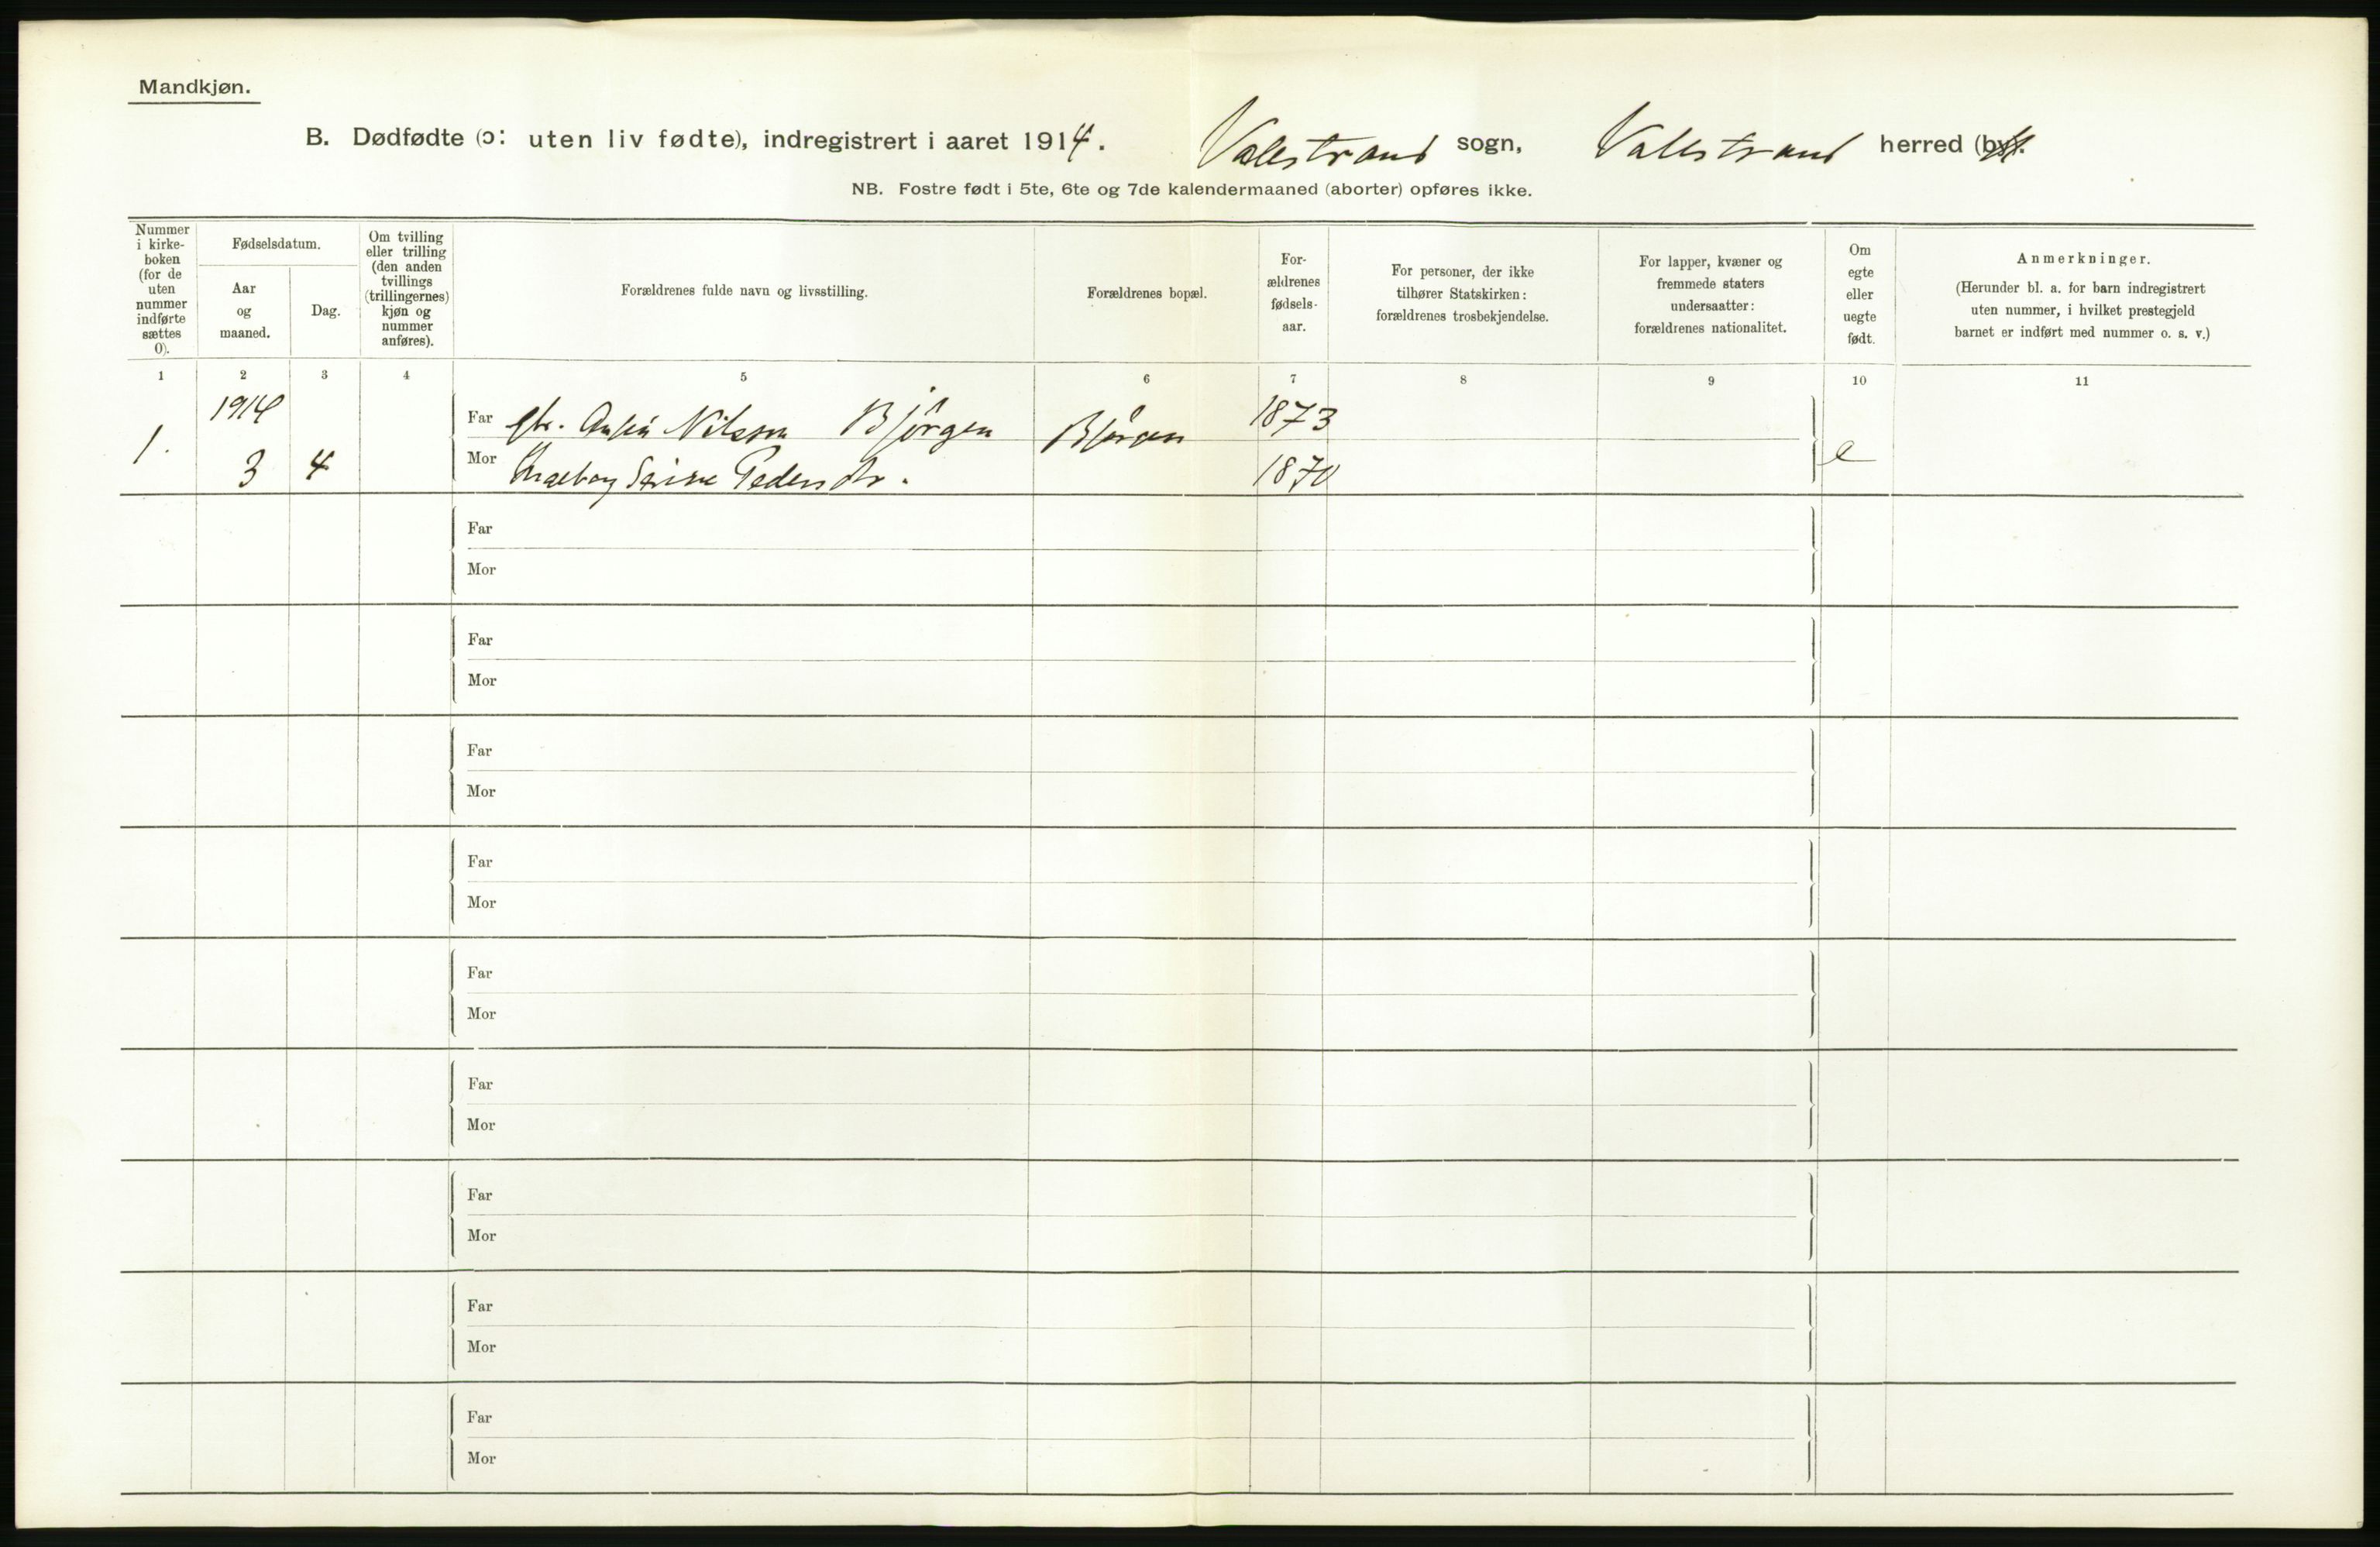 Mandkjøn.
B. Dødfødte (ɔ: uten liv fødte), indregistrert i aaret 1914. Valestrand sogn, Valestrand herred (by).
NB. Fostre født i 5te, 6te og 7de kalendermaaned (aborter) opføres ikke.
Nummer
i kirke-
boken
(for de
uten
nummer
indførte
sættes
0).
Fødselsdatum.
Aar
og
maaned.
Dag.
Om tvilling
eller trilling
(den anden
tvillings
(trillingernes)
kjøn og
nummer
anføres).
Forældrenes fulde navn og livsstilling.
Forældrenes bopæl.
For-
ældrenes
fødsels-
aar.
For personer, der ikke
tilhører Statskirken:
forældrenes trosbekjendelse.
For lapper, kvæner og
fremmede staters
undersaatter:
forældrenes nationalitet.
Om
egte
eller
uegte
født.
Anmerkninger.
(Herunder bl. a. for barn indregistrert
uten nummer, i hvilket prestegjeld
barnet er indført med nummer o. s. v.)
1 2 3 4 5 6 7 8 9 10 11
1914
1. 3 4
Far gbr. Nilssen Bjørgen Bjørgen 1873
Mor Ingeborg Pedersdtr. 1870 e
Far
Mor
Far
Mor
Far
Mor
Far
Mor
Far
Mor
Far
Mor
Far
Mor
Far
Mor
Far
Mor